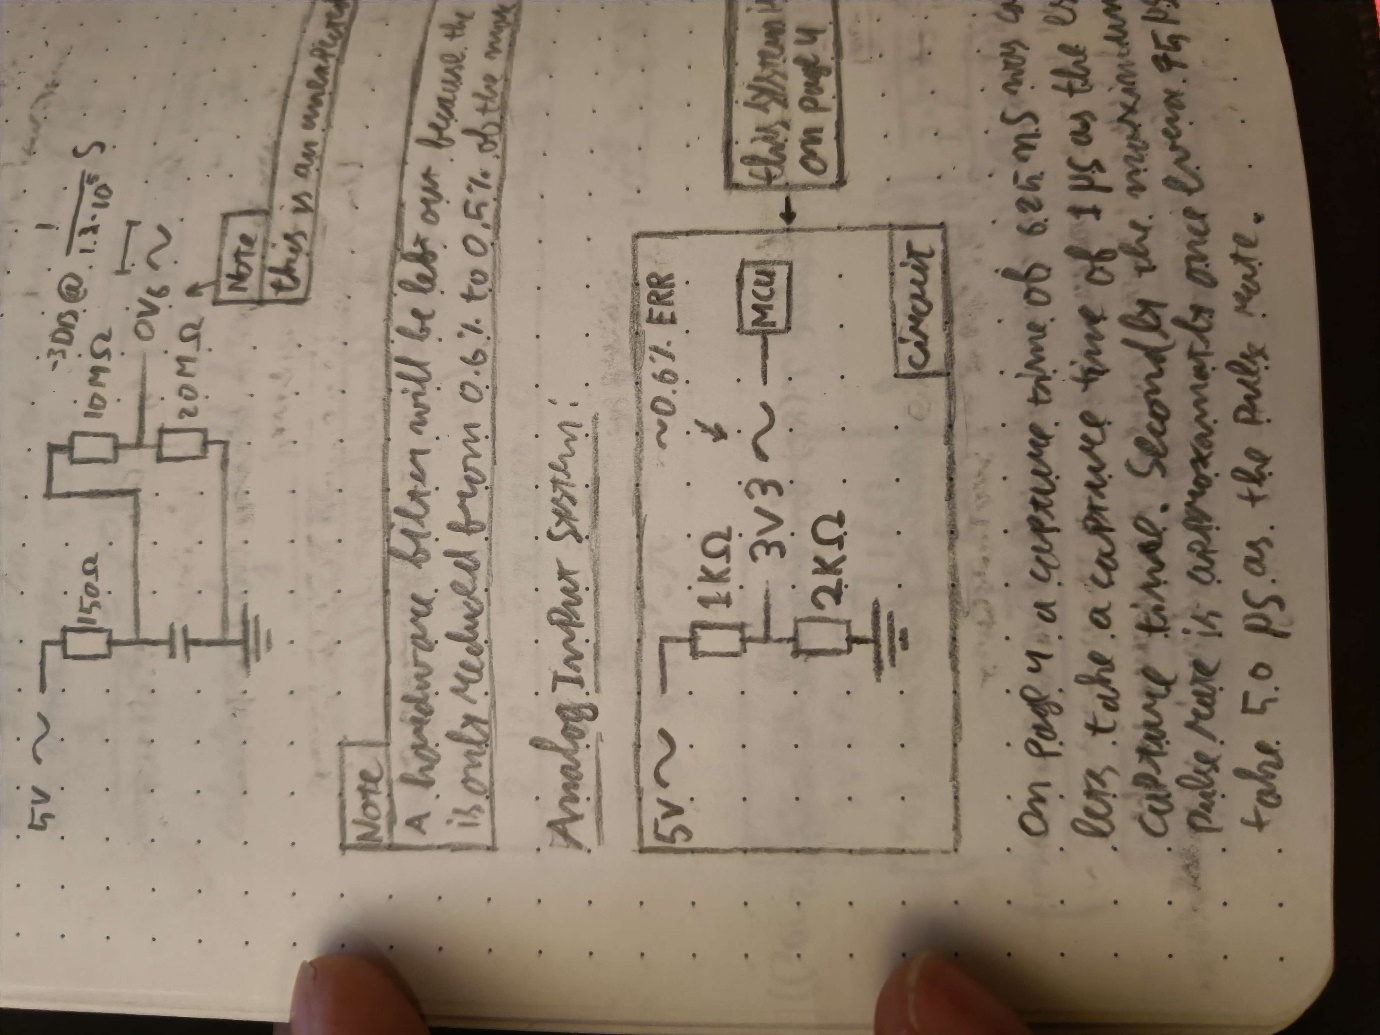 5V ~
150Ω
10MΩ
20MΩ
-3DB @
1
S
Note
this is an
Note
A hardware filter will be left out because the
is only reduced from 0.6% to 0.5% of the
Analog Input System:
5V ~
1KΩ
2KΩ
3V3 ~
~0.6% ERR
MCU
circuit
this system is
on page 4
On Page 4 a capture time of 6.25 nS was
lets take a capture time of 1 µS as the
capture time. Secondly the maximum
pulse rate is approxamatly once every 95 µS
take 5.0 µS as the pulse rate.